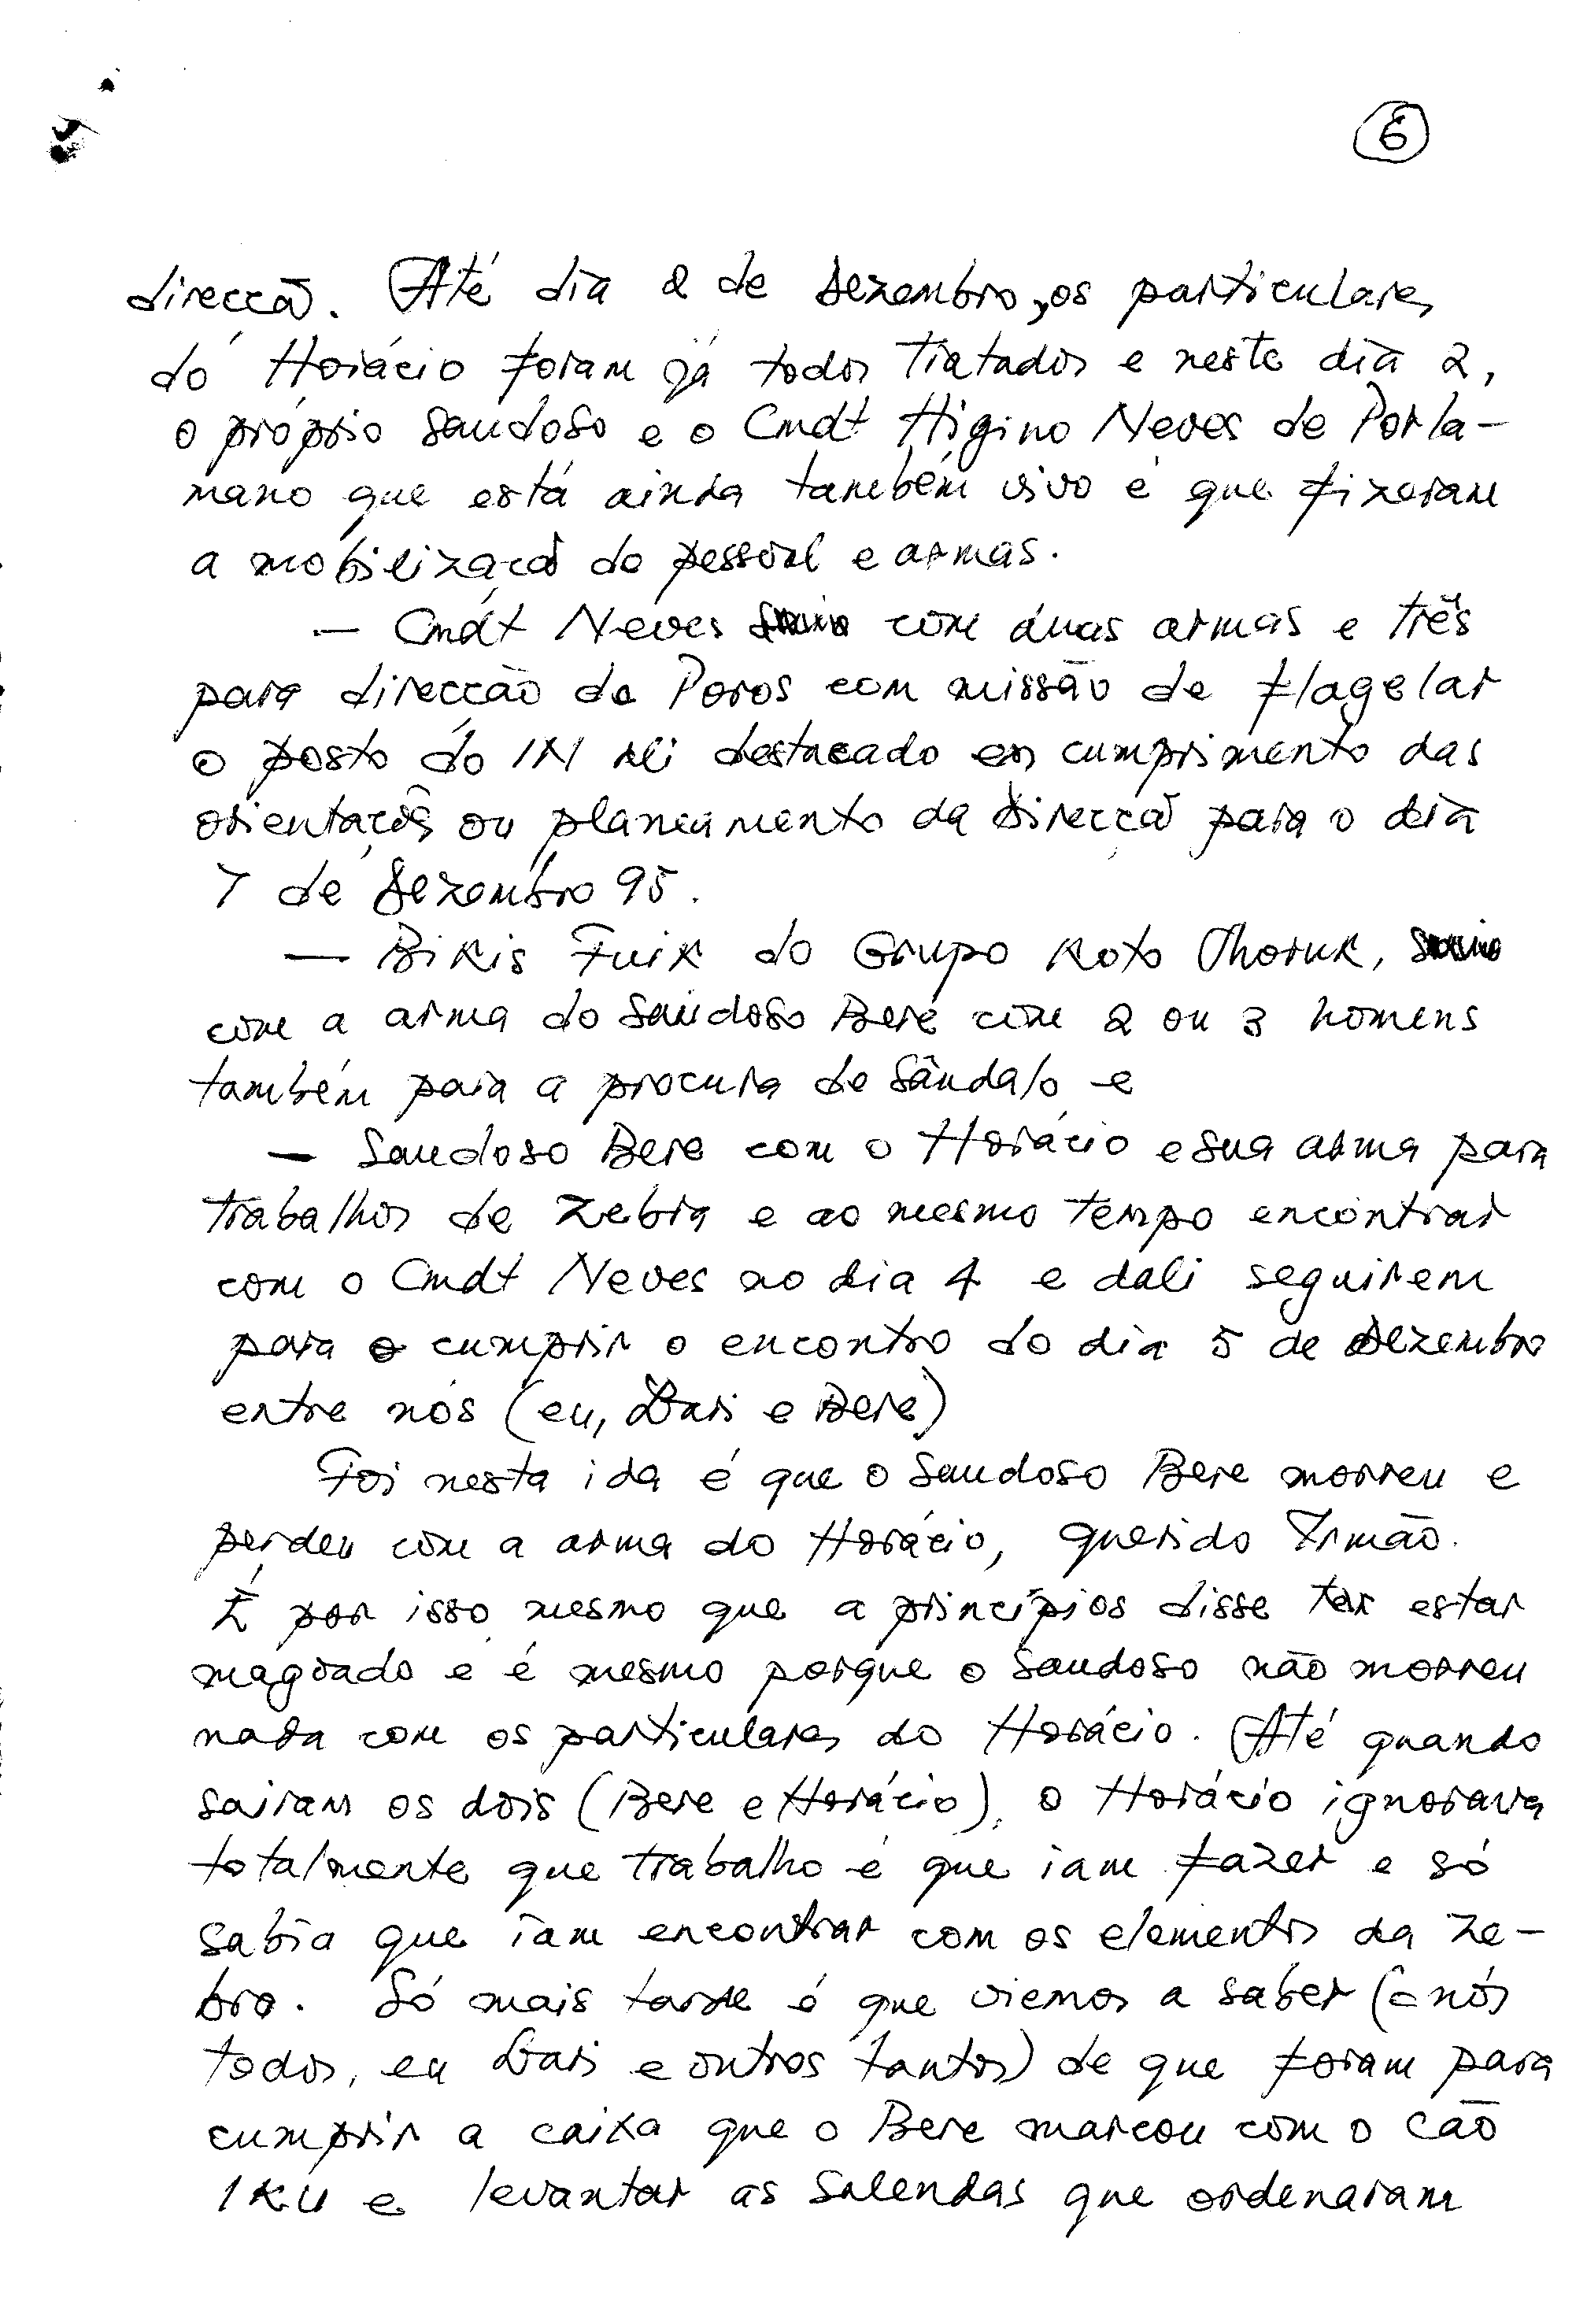 6
direccão. Até dia 2 de Dezembro, os particulares
do Horácio foram já todos tratados e neste dia 2,
o próprio saudoso e o Cmdt Higino Neves de Porla-
mano que está ainda também vivo é que fizeram
a mobilização do pessoal e armas.
— Cmdt Neves com duas armas e três
para direcção de Poros com missão de flagelar
o posto do IN ali destacado em cumprimento das
orientações ou planeamento da Direcção para o dia
7 de Dezembro 95.
— Bikis Fuik do Grupo Koto Thoruk,
com a arma do saudoso Bere com 2 ou 3 homens
também para a procura de sândalo e
— Saudoso Bere com o Horácio e sua arma para
trabalhos de Zebra e ao mesmo tempo encontrar
com o Cmdt Neves no dia 4 e dali seguirem
para cumprir o encontro do dia 5 de Dezembro
entre nós (eu, Daris e Bere)
Foi nesta ida é que o saudoso Bere morreu e
perdeu com a arma do Horácio, querido Irmão.
É por isso mesmo que a princípios disse ter estar
magoado e é mesmo porque o saudoso não morreu
nada com os particulares do Horácio. Até quando
sairam os dois (Bere e Horácio), o Horácio ignorava
totalmente que trabalho é que iam fazer e só
sabia que iam encontrar com os elementos da Ze-
bra. Só mais tarde é que viemos a saber (nós
todos, eu Daris e outros tantos) de que foram para
cumprir a caixa que o Bere marcou com o cão
IKU e levantar as salendas que ordenaram